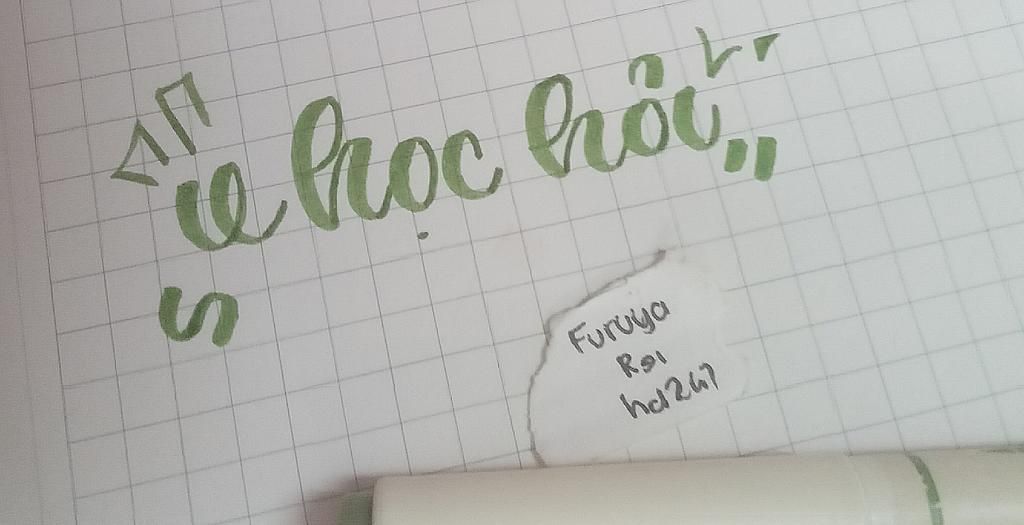 học hỏi
Furuya
Rei
hd247